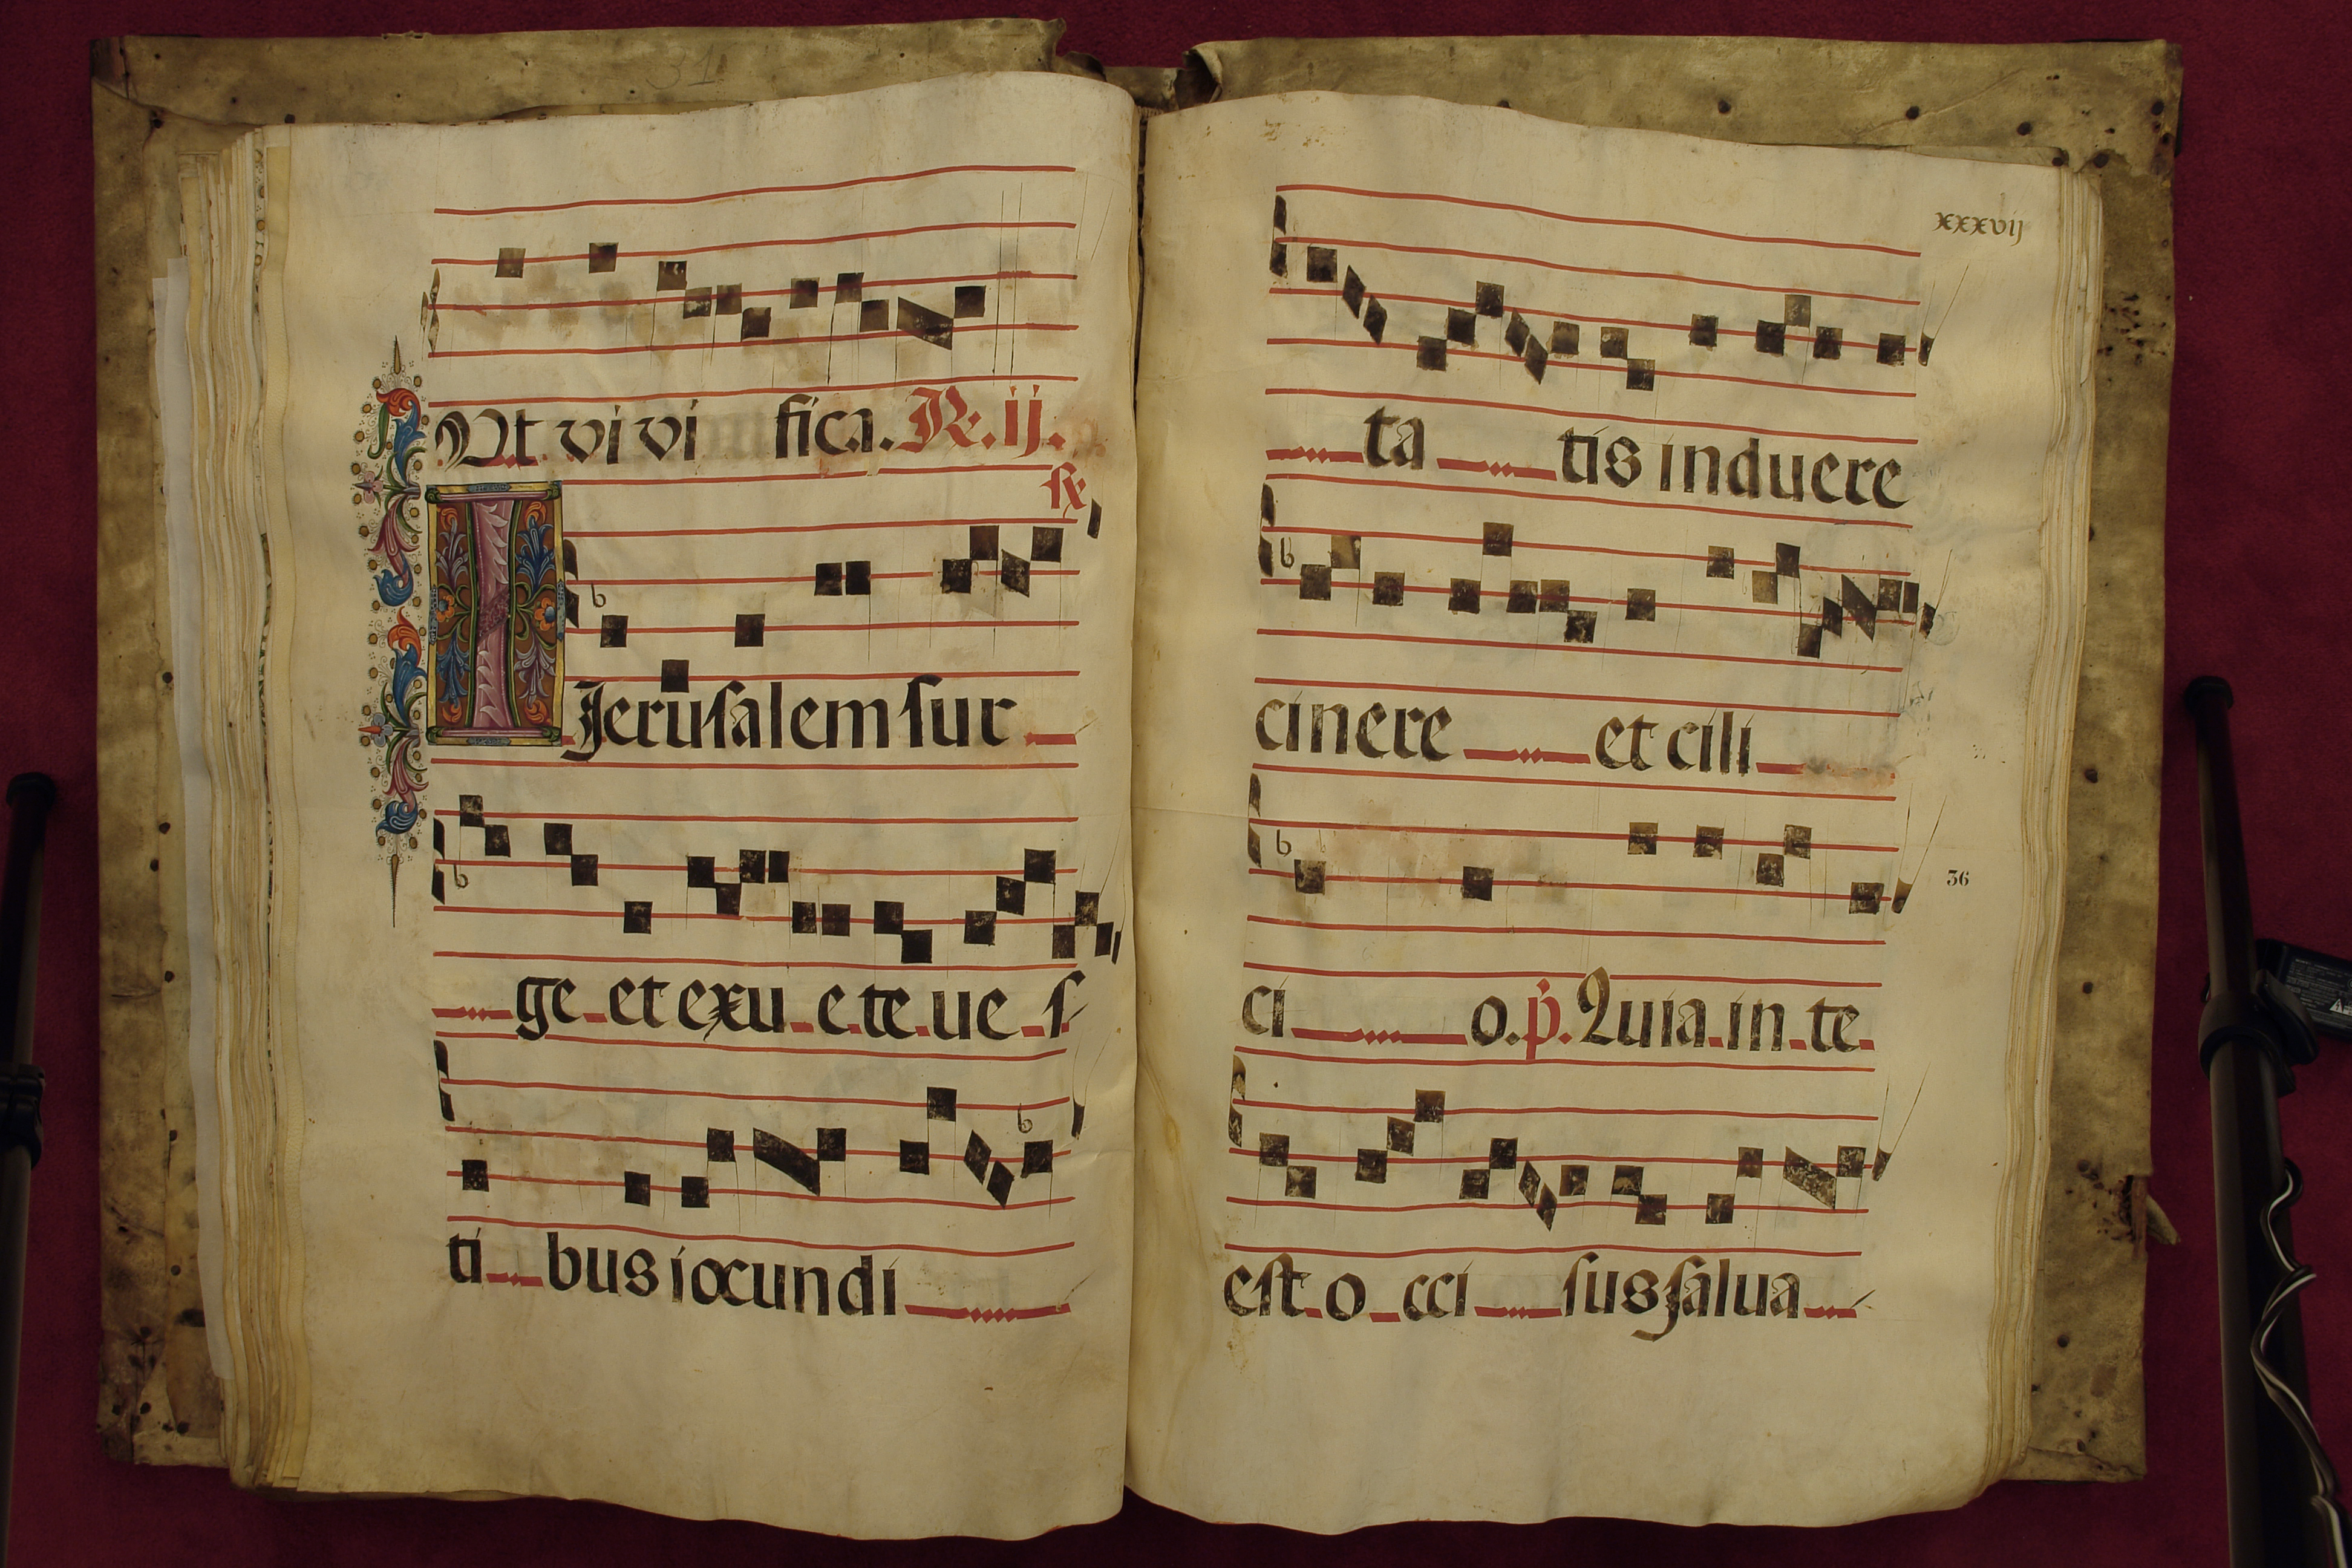 31
Ut vivi fica. R. ij.
R
Jerusalem sur
ge et exu e te ves
ti bus iocundi
xxxvij
ta tis induere
cinere et cili
ci o. p. Quia in te
36
est o cci sus salva